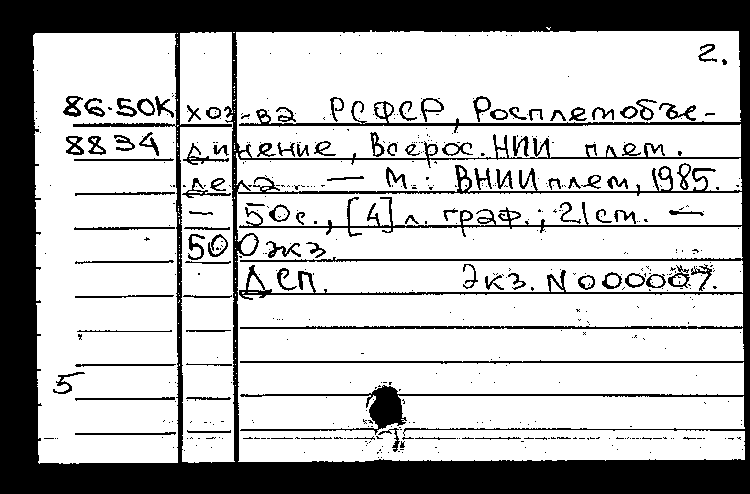 2.
86-50К хоз-ва РСФСР, Росплемобъе-
8834 динение, Всерос. НИИ плем.
дела. — М.: ВНИИплем, 1985.
— 50с., [4] л. граф.; 21 см. —
500 экз.
ДСП. Экз. N 000007.
5